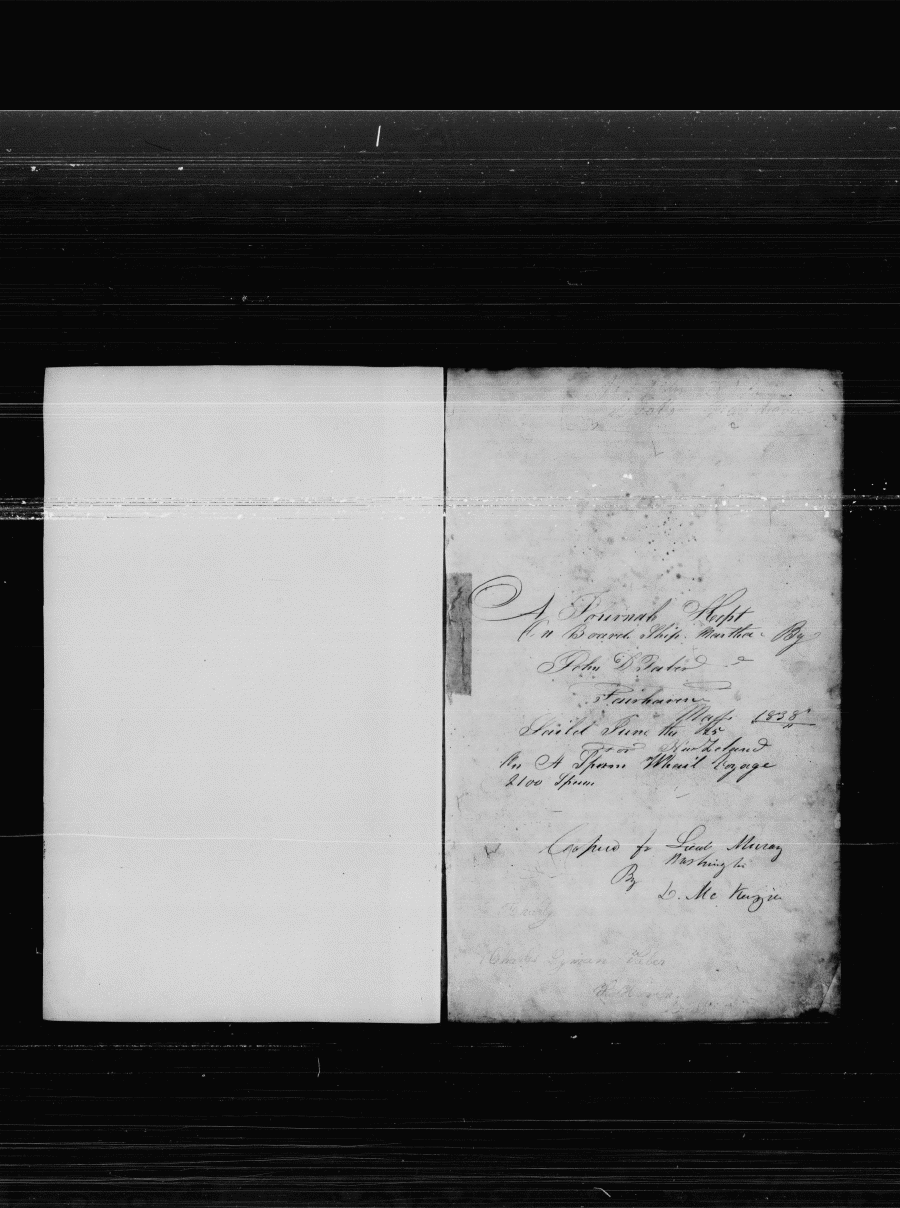 A Journah Kept
On Board Ship Martha By
John D Taber
Fairhaven
Mass 1838
Sailed June the
For New Zeland
On A Sparm Whail Voyage
2100 Sparm
Copied for Lieut Murray
Washington
By
D. Mc Kenzie
Charles Lyman Taber